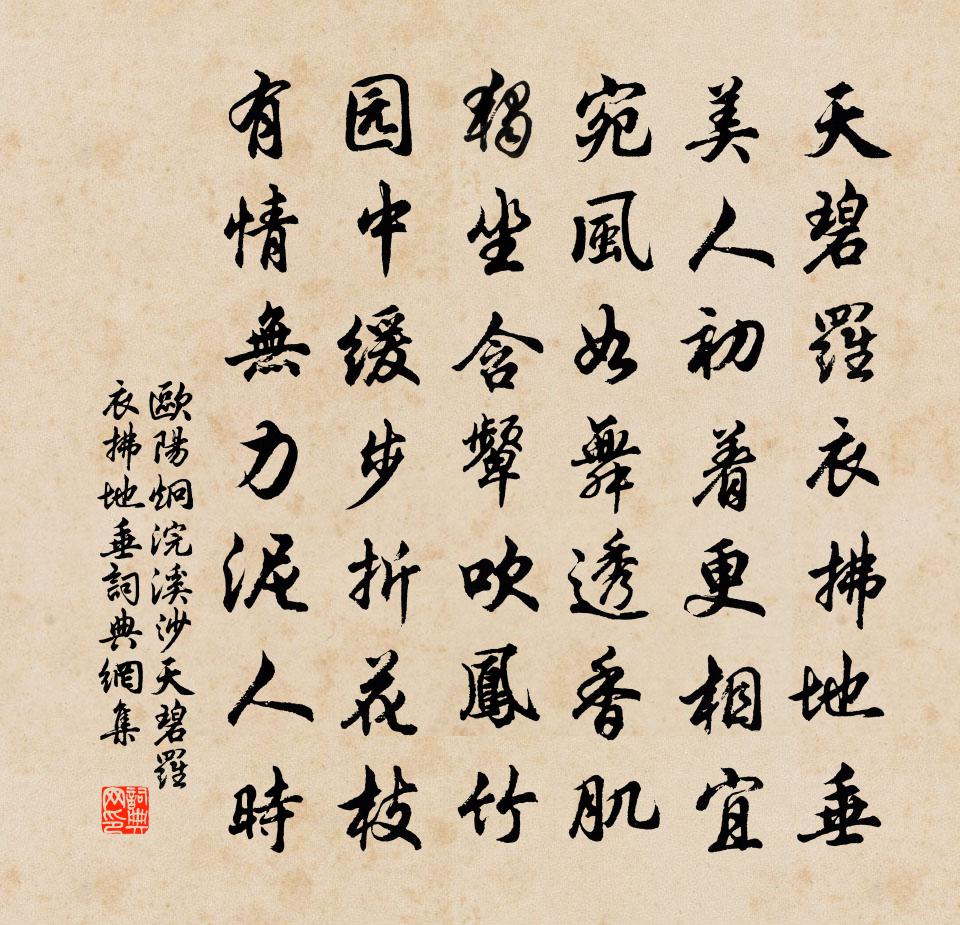 天碧羅衣拂地垂
美人初着更相宜
宛風如舞透香肌
獨坐含顰吹鳳竹
园中缓步折花枝
有情無力泥人時
歐陽炯浣溪沙天碧羅
衣拂地垂詞典網集
詞典
网印